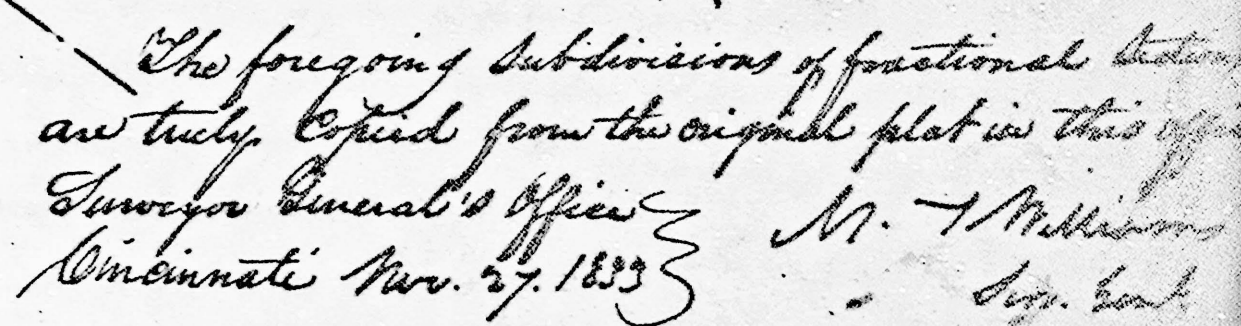 The foregoing subdivisions of fractional Sections
are truly Copied from the original plat in this office
Surveyor General's Office
Cincinnati Nov. 27. 1833
M. T Williams
Sur. Genl.